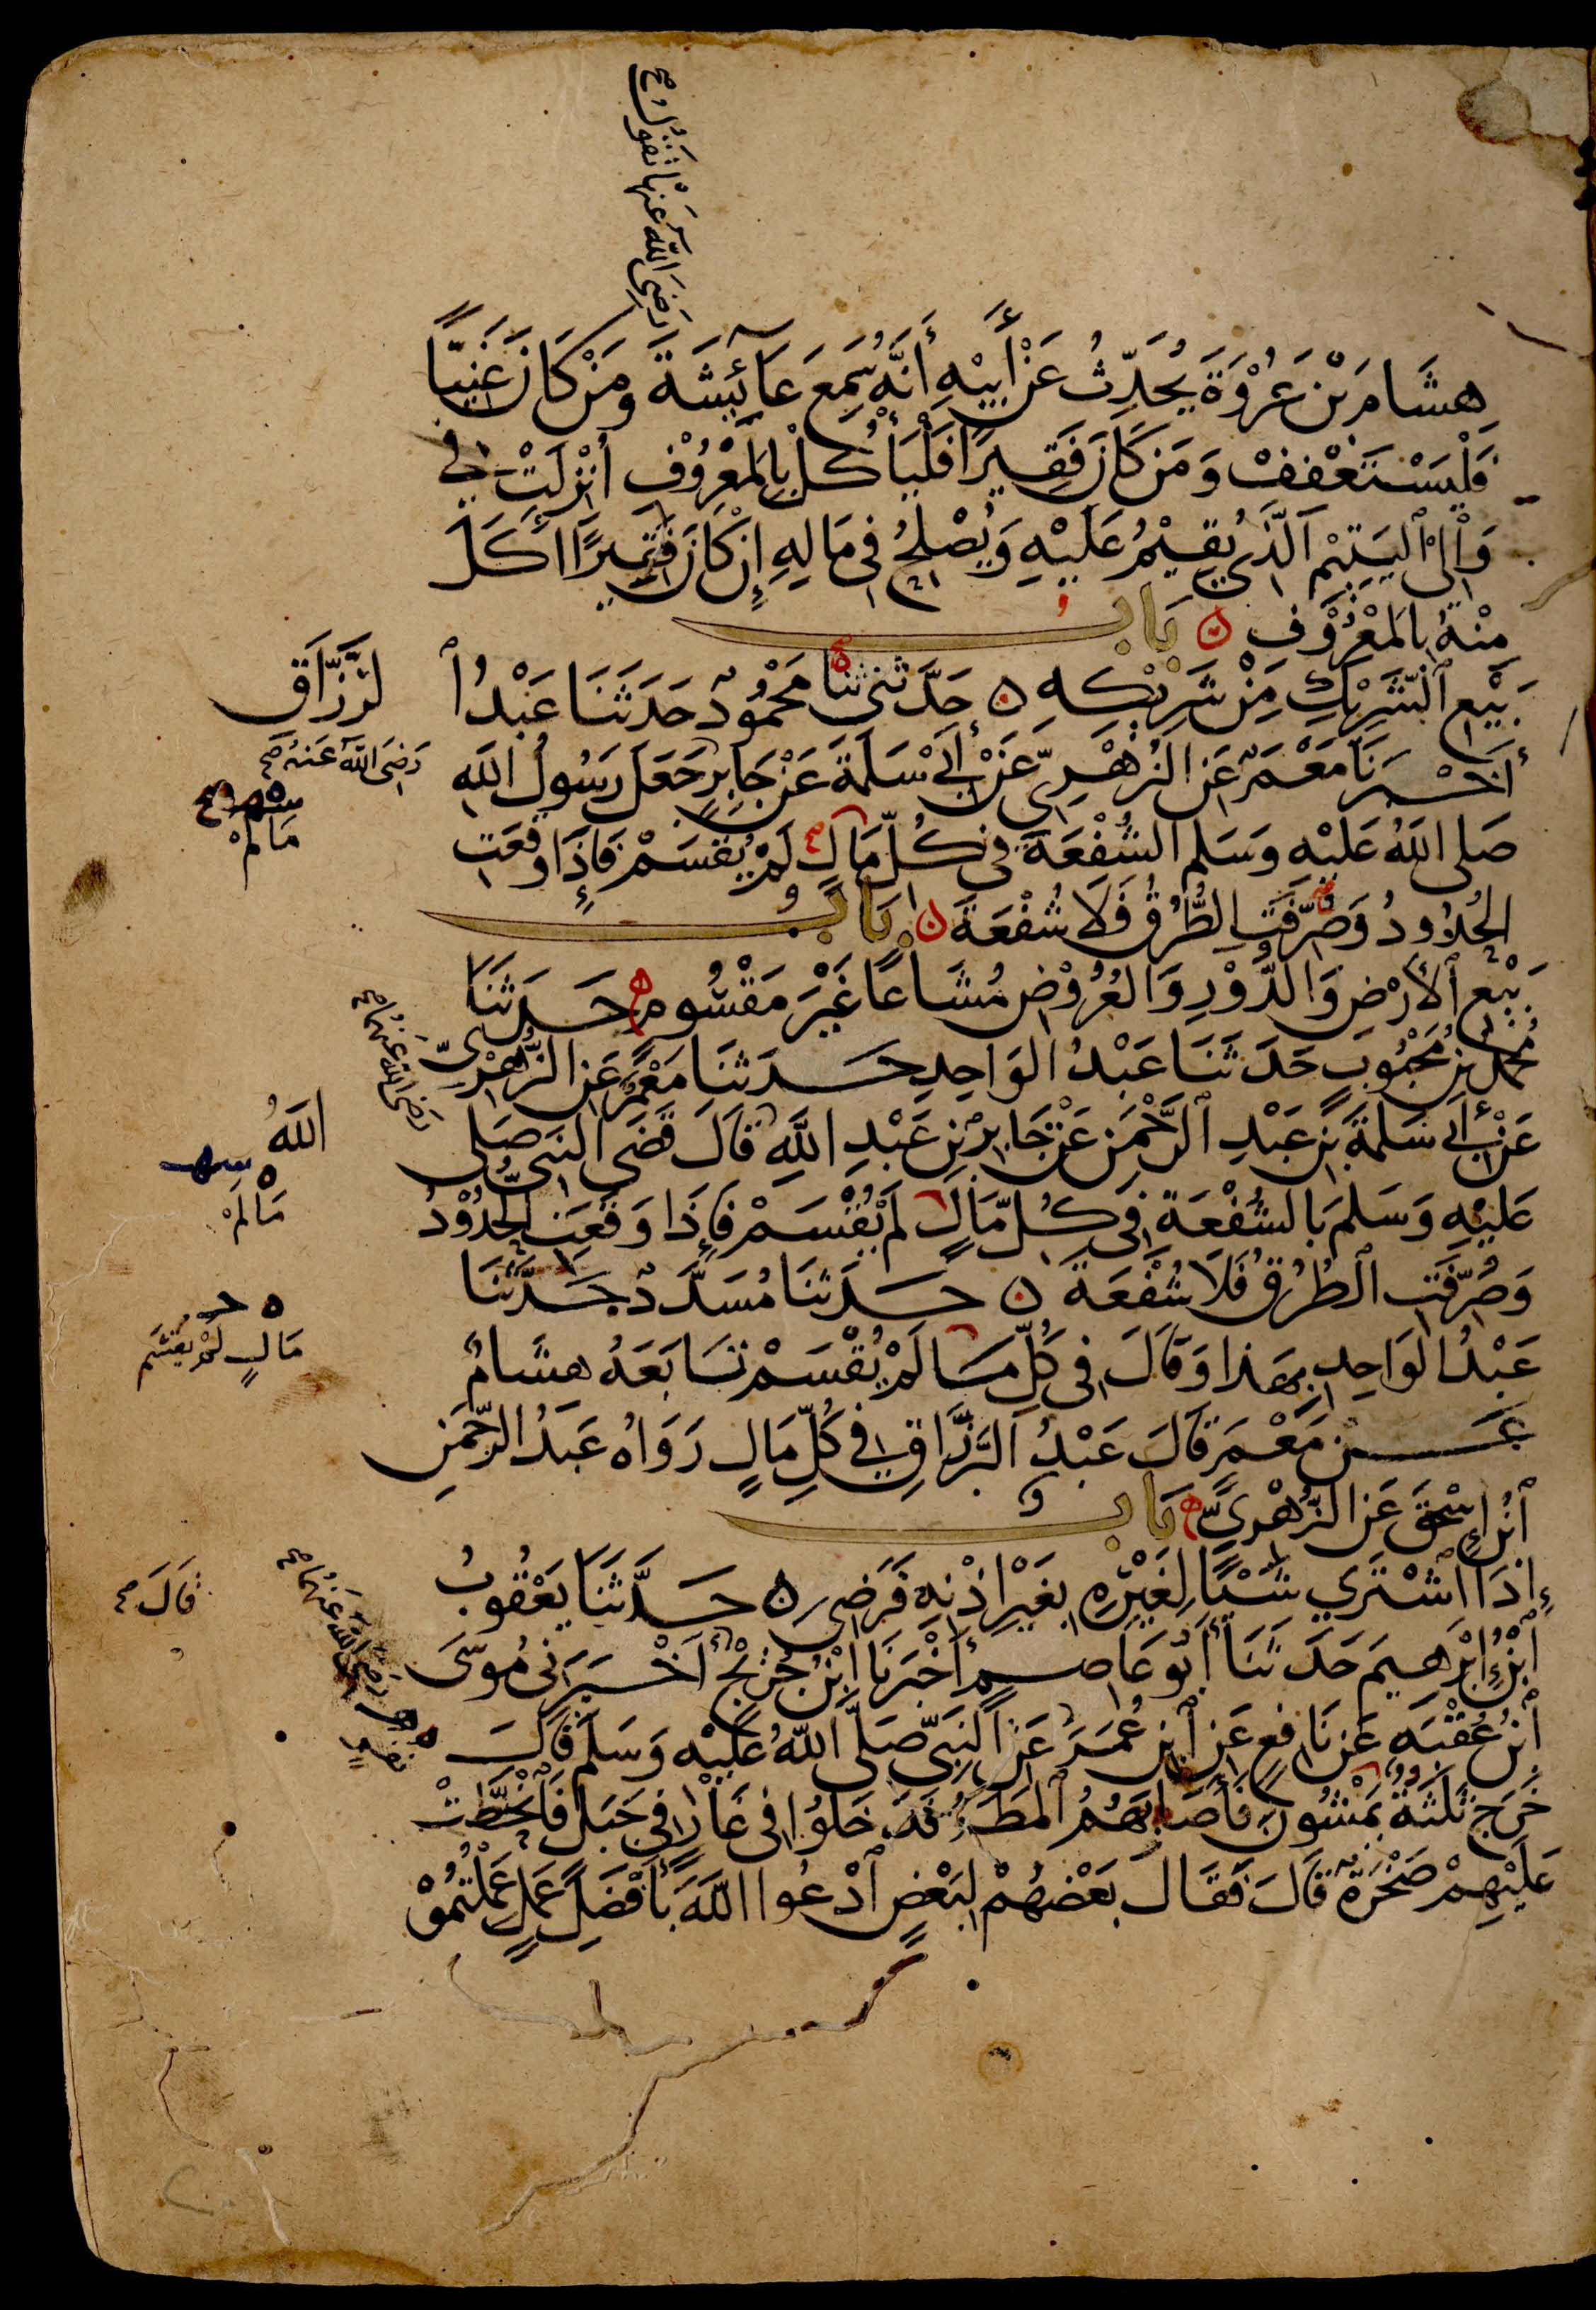 رَضِيَ اللّٰهُ عَنْهَا تَقُولُ صح
هِشَامَ بْنَ عُرْوَةَ يُحَدِّثُ عَنْ أَبِيْهِ أَنَّهُ سَمِعَ عَآئِشَةَ وَمَنْ كَانَ غَنِيًّا
فَلْيَسْتَعْفِفْ وَمَنْ كَانَ فَقِيرًا فَلْيَأْكُلْ بِالْمَعْرُوْفِ أُنْزِلَتْ فِي
وَالِي الْيَتِيْمِ الَّذِي يُقِيْمُ عَلَيْهِ وَيُصْلِحُ فِي مَالِهِ إِنْ كَانَ فَقِيرًا أَكَلَ
مِنْهُ بِالْمَعْرُوْفِ بَابُ
بَيْعِ الشَّرِيْكِ مِنْ شَرِيْكِهِ حَدَّثَنِي ثنا مَحْمُوْدٌ حَدَثَنَا عَبْدُ ا
لرَّزَّاقِ
أَخْبَرَنَا مَعْمَرٌ عَنِ الزُّهْرِيِّ عَنْ أَبِي سَلَمَةَ عَنْ جَابِرٍ جَعَلَ رَسُولُ اللّٰهِ
رَضِيَ اللّٰهُ عَنْهُ صح
صَلى اللّٰهُ عَلَيْهِ وَسَلم الشُّفْعَةَ فِي كُلِّ مَالٍ لَمْ يُقْسَمْ فَإِذَا وَقَعَتِ
مَا لَمْ
الْحُدُودُ وَصُرِّفَتِ الطُّرُقُ فَلَا شُفْعَةَ بَابُ
بَيْعِ الْأَرْضِ وَالدُّوْرِ وَالْعُرُوْضِ مُشَاعًا غَيْرَ مَقْسُومٍ حَدَثَنَا
مُحَمَّدُ بْنُ مَحْبُوبٍ حَدَثَنَا عَبْدُ الْوَاحِدِ حَدَثَنَا مَعْمَرٌ عَنِ الزُّهْرِيِّ
رَضِيَ اللّٰهُ عَنْهُمَا صح
عَنْ أَبِي سَلَمَةَ بْنِ عَبْدِ الرَّحْمَنِ عَنْ جَابِرِ بْنِ عَبْدِ اللّٰهِ قَالَ قَضَى النَّبِيُّ صَلى
اللّٰهُ
عَلَيْهِ وَسَلَمَ بِالشُّفْعَةِ فِي كُلِّ مَالٍ لَمْ يُقْسَمْ فَإِذَا وَقَعَتِ الْحُدُوْدُ
مَا لَمْ
وَصُرِّفَتِ الطُّرُقُ فَلَا شُفْعَةَ حَدَثَنَا مُسَدَّدٌ حَدَّثَنَا
عَبْدُ الْوَاحِدِ بِهَذَا وَقَالَ فِي كُلِّ مَا لَمْ يُقْسَمْ تَابَعَهُ هِشَامٌ
مَالٍ لَمْ يُقْسَم
عَنْ مَعْمَرٍ قَالَ عَبْدُ الرَّزَّاقِ فِي كُلِّ مَالٍ رَوَاهُ عَبْدُ الرَّحْمَنِ
ابْنُ إِسْحٰقَ عَنِ الزُّهْرِيِّ بَابُ
إِذَا اشْتَرَي شَيْئًا لِغَيْرِهِ بِغَيْرِ إِذْنِهِ فَرَضِيَ حَدَّثَنَا يَعْقُوبُ
ابْنُ إِبْرٰهِيمَ حَدَثَنَا أَبُو عَاصِمٍ أَخْبَرَنَا ابْنُ جُرَيْجٍ أَخْبَرَنِي مُوسَى
قَالَ صح
رَضِيَ اللّٰهُ عَنْهُمَا صح
ابْنُ عُقْبَةَ عَنْ نَافِعٍ عَنِ ابْنِ عُمَرَ عَنِ النَّبِيِّ صَلَّى اللّٰهُ عَلَيْهِ وَسَلَمَ قَالَ
خَرَجَ ثَلٰثَةٌ يَمْشُونَ فَأَصَابَهُمُ الْمَطَرُ فَدَخَلُوا فِي غَارٍ فِي جَبَلٍ فَانْحَطَّتْ
عَلَيْهِمْ صَخْرَةٌ قَالَ فَقَالَ بَعْضُهُمْ لِبَعْضٍ ادْعُوا اللّٰهَ بِأَفْضَلِ عَمَلٍ عَمِلْتُمُوْ